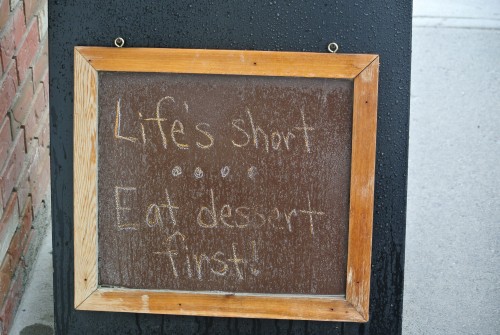 Life's short
....
Eat dessert
first!